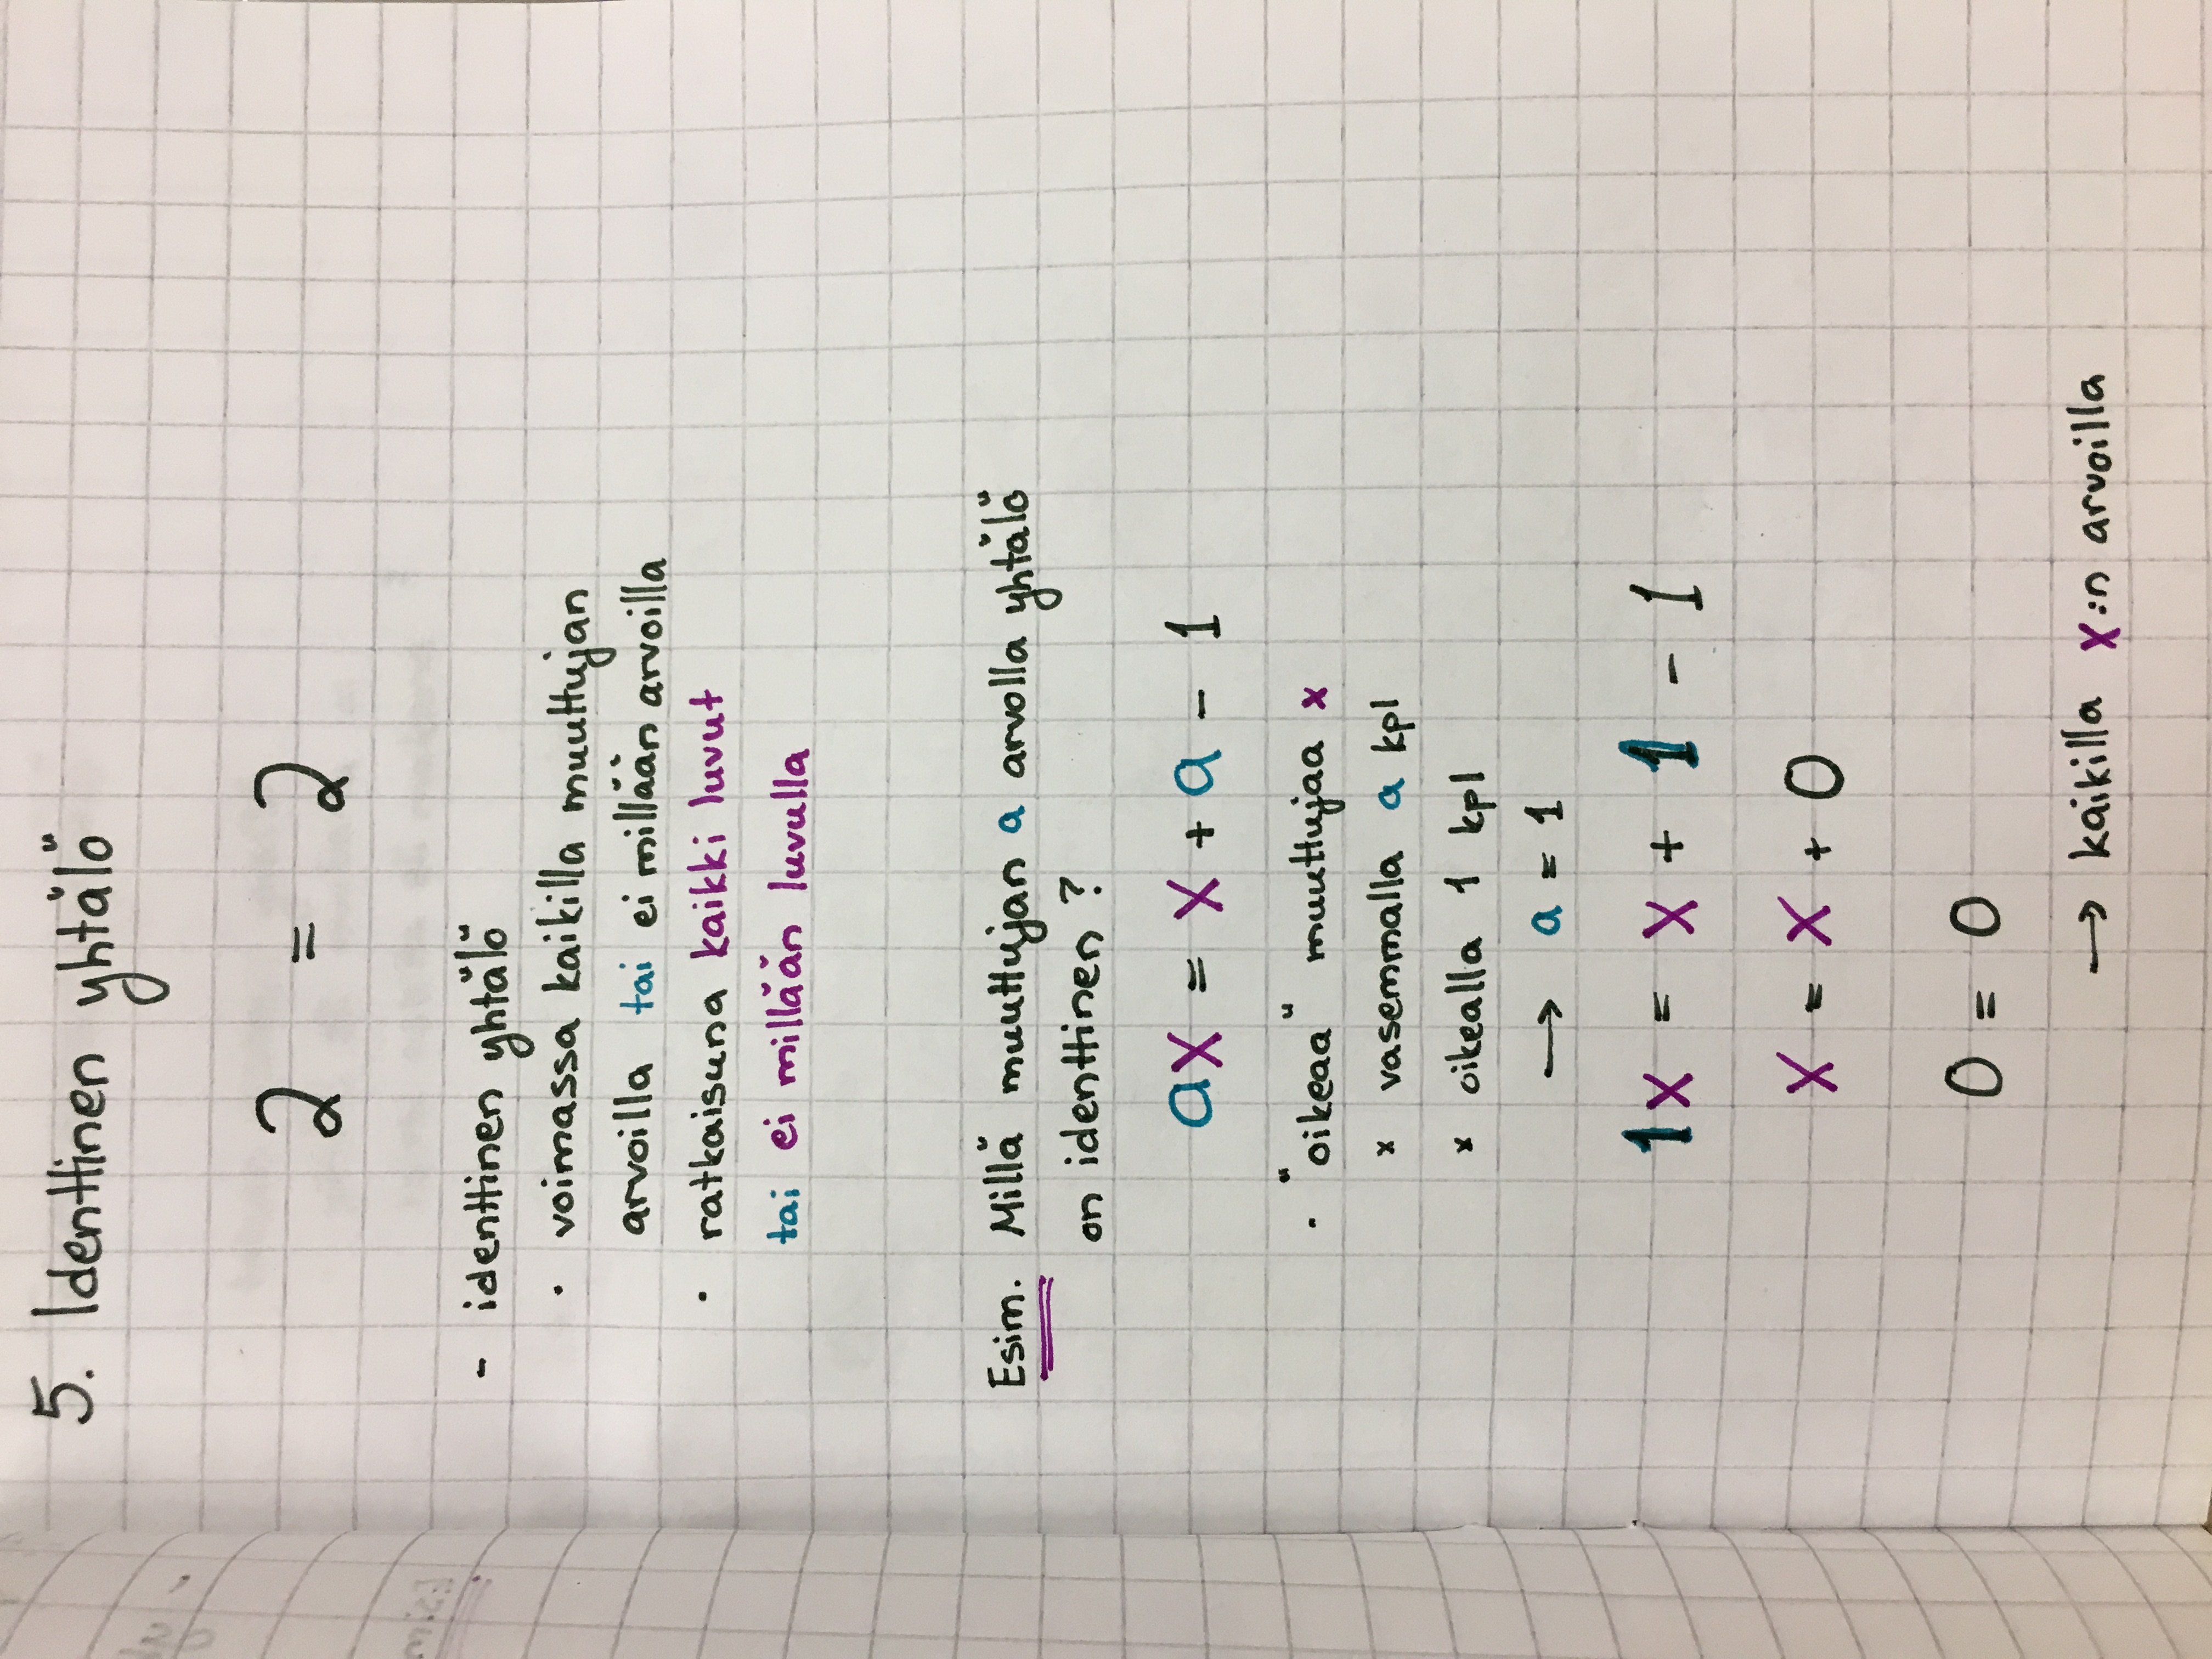 5. Identtinen yhtälö
2 = 2
- identtinen yhtälö
· voimassa kaikilla muuttujan
arvoilla tai ei millään arvoilla
· ratkaisuna kaikki luvut
tai ei millään luvulla
Esim. Millä muuttujan a arvolla yhtälö
on identtinen?
ax = x + a - 1
· "oikeaa" muuttujaa x
x vasemmalla a kpl
x oikealla 1 kpl
→ a = 1
1x = x + 1 - 1
x = x + 0
0 = 0
→ kaikilla x:n arvoilla